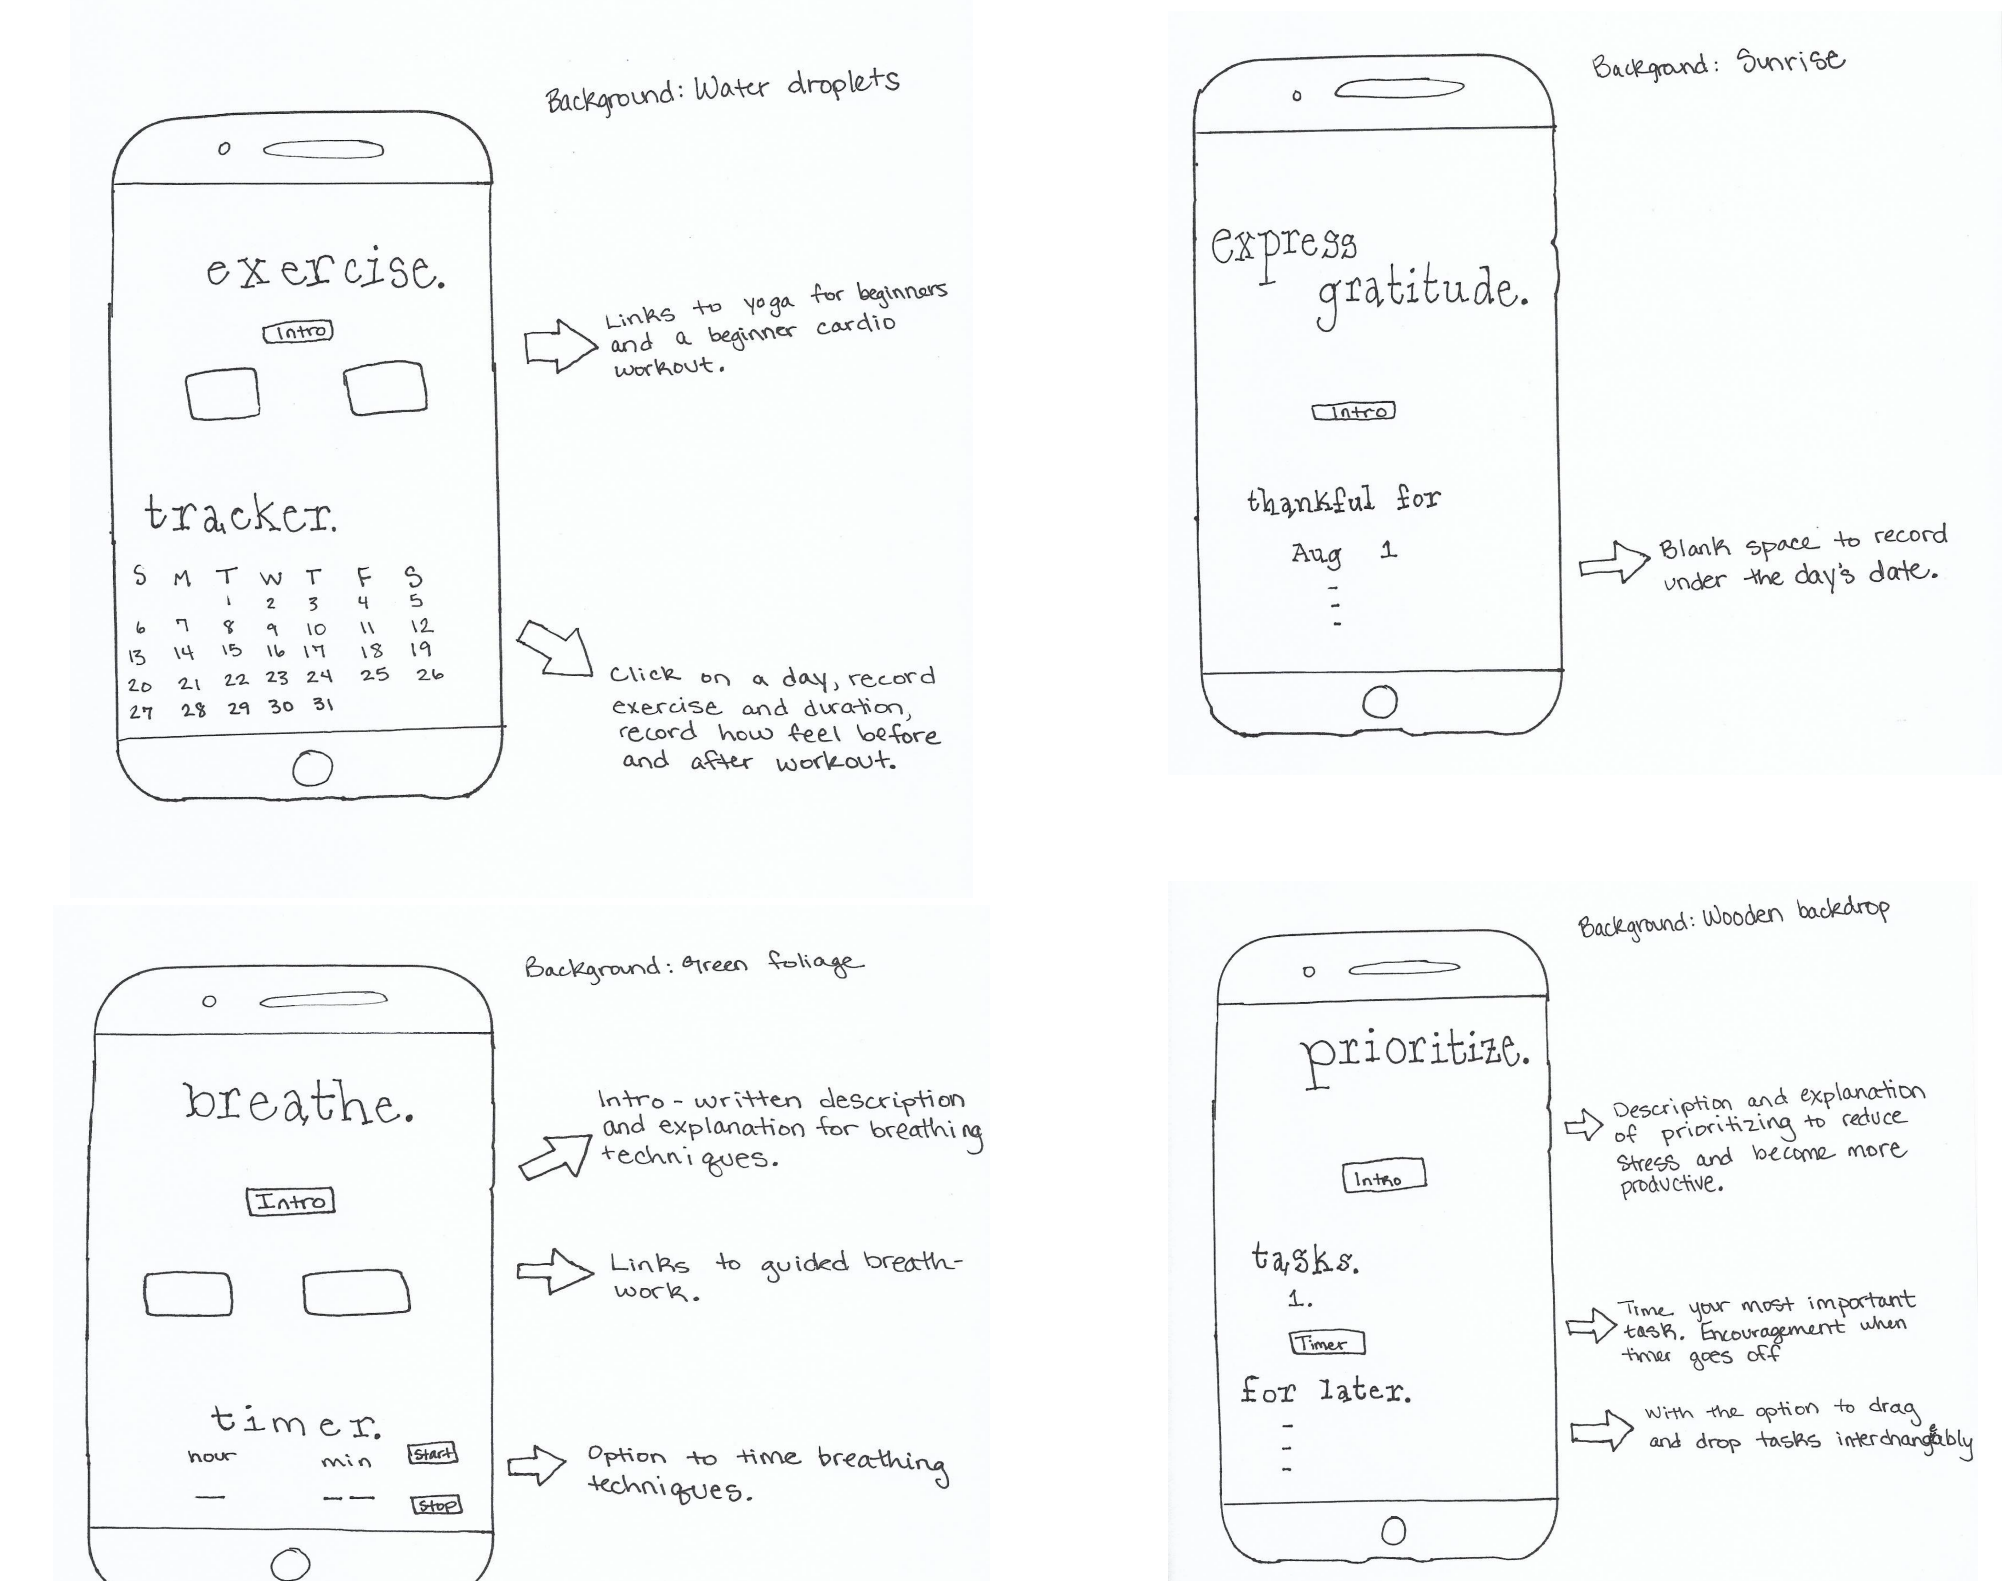 Background: Water droplets
exercise.
Intro
Links to yoga for beginners
and a beginner cardio
workout.
tracker.
S M T W T F S
1 2 3 4 5
6 7 8 9 10 11 12
13 14 15 16 17 18 19
20 21 22 23 24 25 26
27 28 29 30 31
Click on a day, record
exercise and duration,
record how feel before
and after workout.
Background: Sunrise
express
gratitude.
Intro
thankful for
Aug 1
-
-
-
Blank space to record
under the day's date.
Background: Green foliage
breathe.
Intro
Intro - written description
and explanation for breathing
techniques.
Links to guided breath-
work.
timer.
hour min Start
Stop
Option to time breathing
techniques.
Background: Wooden backdrop
prioritize.
Intro
Description and explanation
of prioritizing to reduce
stress and become more
productive.
tasks.
1.
Timer
Time your most important
task. Encouragement when
timer goes off
for later.
-
-
-
With the option to drag
and drop tasks interchangeably